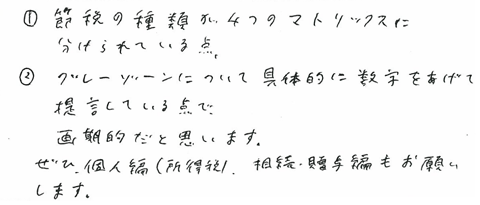 ① 節税の種類が4つのマトリックスに
分けられている点。
② グレーゾーンについて具体的に数字をあげて
提言している点で
画期的だと思います。
ぜひ、個人編(所得税)、相続・贈与編もお願い
します。